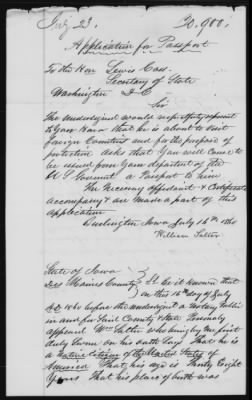 July 23. 20.900.
Application for Passport
To the Hon Lewis Cass.
Secretary of State
Washington D C
Sir
The undersigned would respectfully represent
to your Honor that he is about to visit
foreign Countries and for the purpose of
protection asks that you will cause to
be issued from your department of the
U S Goverment a Passport to him
The necessary affidavit & Certificate
accompany & are made a part of this
application
Burlington Iowa July 16th 1860
William Salter
State of Iowa
Des Moines County } Be it known that
on this 16th day of July
AD 1860 before the undersigned a notary Public
in and for Said County & State Personaly
appeared Wm Salter who being by me first
duly Sworn on his oath Says That he is
a native Citizen of the United States of
America That his age is Thirty Eight
Years That his place of birth was